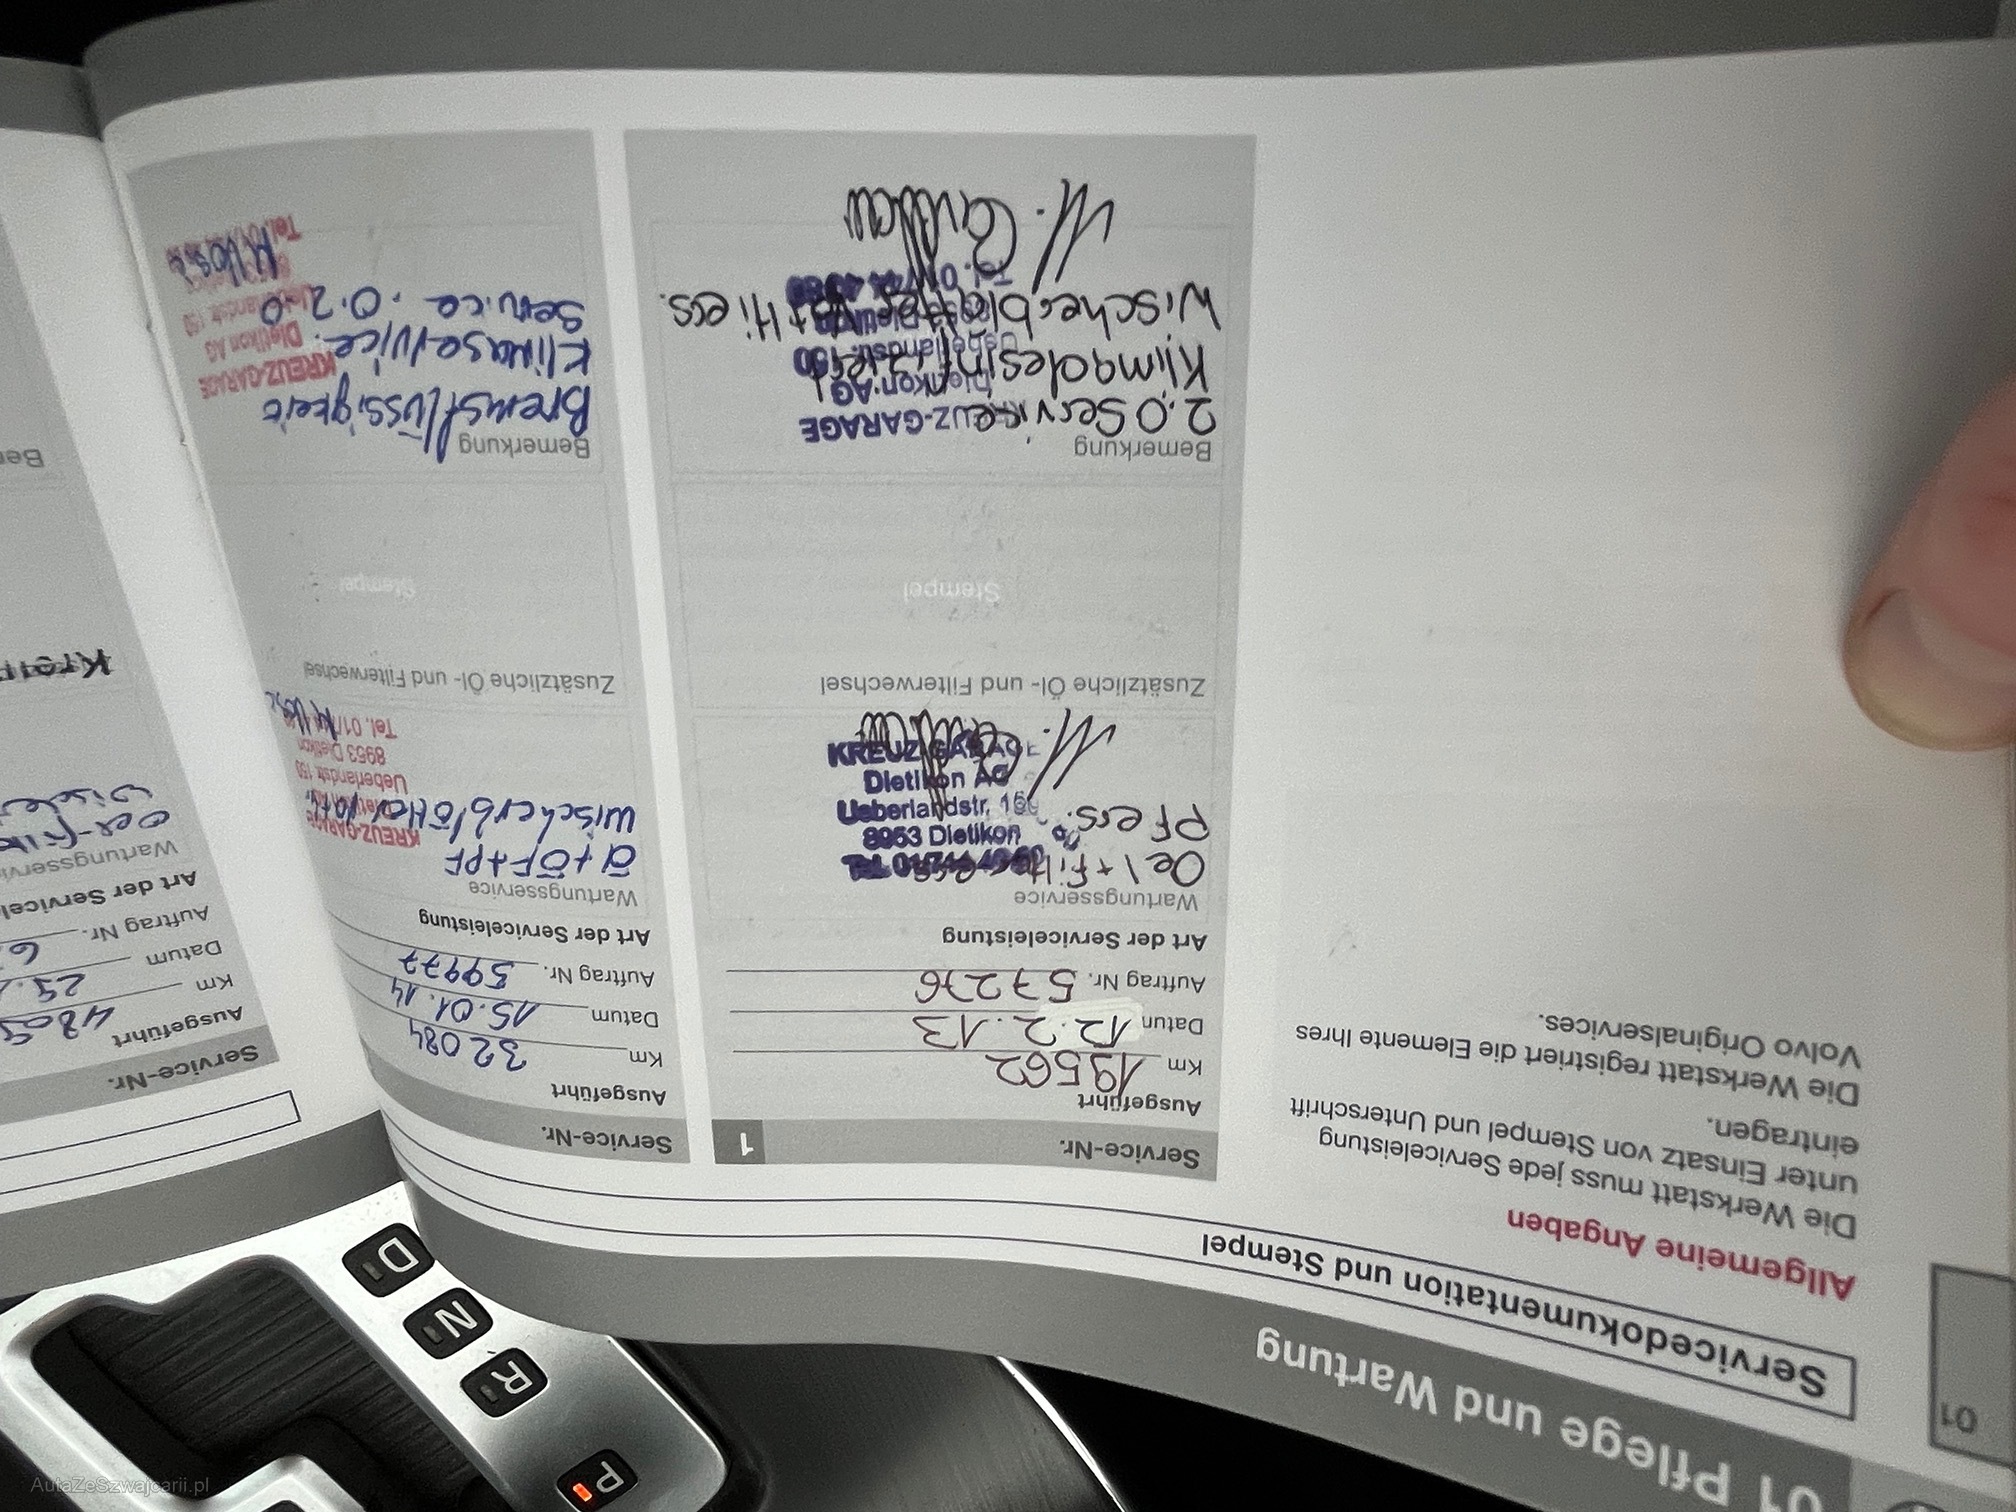 01 Pflege und Wartung
01
Servicedokumentation und Stempel
Allgemeine Angaben
Die Werkstatt muss jede Serviceleistung
unter Einsatz von Stempel und Unterschrift
eintragen.
Die Werkstatt registriert die Elemente Ihres
Volvo Originalservices.
Service-Nr. 1
Ausgeführt
Km 19562
Datum 12.2.13
Auftrag Nr. 57276
Art der Serviceleistung
Wartungsservice
Oel + Filter
KREUZ-GARAGE
Dietikon AG
Ueberlandstr.
8953 Dietikon
Zusätzliche Öl- und Filterwechsel
Stempel
Bemerkung
2.0 Service
Klimadesinfiziert
Wischerblätter
KREUZ-GARAGE
Dietikon AG
Service-Nr.
Ausgeführt
Km 32084
Datum 15.01.14
Auftrag Nr. 59977
Art der Serviceleistung
Wartungsservice
Ö+ÖF+PF
Wischerblätter
KREUZ-GARAGE
Ueberlandstr. 150
8953 Dietikon
Tel. 01/
Zusätzliche Öl- und Filterwechsel
Stempel
Bemerkung
Bremsflüssigkeit
Klimaservice.
Service. 0.2.0
KREUZ-GARAGE
Dietikon AG
Tel.
Service-Nr.
Ausgeführt
Km
Datum
Auftrag Nr.
Art der Servicel
Wartungsservi
P
R
N
D
AutaZeSzwajcarii.pl